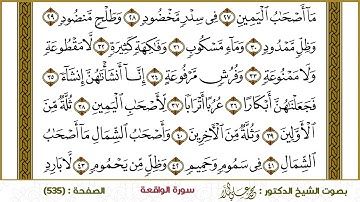 مَآ أَصْحَٰبُ ٱلْيَمِينِ ٢٧ فِى سِدْرٍ مَّخْضُودٍ ٢٨ وَطَلْحٍ مَّنضُودٍ ٢٩
وَظِلٍّ مَّمْدُودٍ ٣٠ وَمَآءٍ مَّسْكُوبٍ ٣١ وَفَٰكِهَةٍ كَثِيرَةٍ ٣٢ لَّا مَقْطُوعَةٍ
وَلَا مَمْنُوعَةٍ ٣٣ وَفُرُشٍ مَّرْفُوعَةٍ ٣٤ إِنَّآ أَنشَأْنَٰهُنَّ إِنشَآءً ٣٥
فَجَعَلْنَٰهُنَّ أَبْكَارًا ٣٦ عُرُبًا أَتْرَابًا ٣٧ لِّأَصْحَٰبِ ٱلْيَمِينِ ٣٨ ثُلَّةٌ مِّنَ
ٱلْأَوَّلِينَ ٣٩ وَثُلَّةٌ مِّنَ ٱلْءَاخِرِينَ ٤٠ وَأَصْحَٰبُ ٱلشِّمَالِ مَآ أَصْحَٰبُ
ٱلشِّمَالِ ٤١ فِى سَمُومٍ وَحَمِيمٍ ٤٢ وَظِلٍّ مِّن يَحْمُومٍ ٤٣ لَّا بَارِدٍ
بصوت الشيخ الدكتور : سورة الواقعة الصفحة : (535)